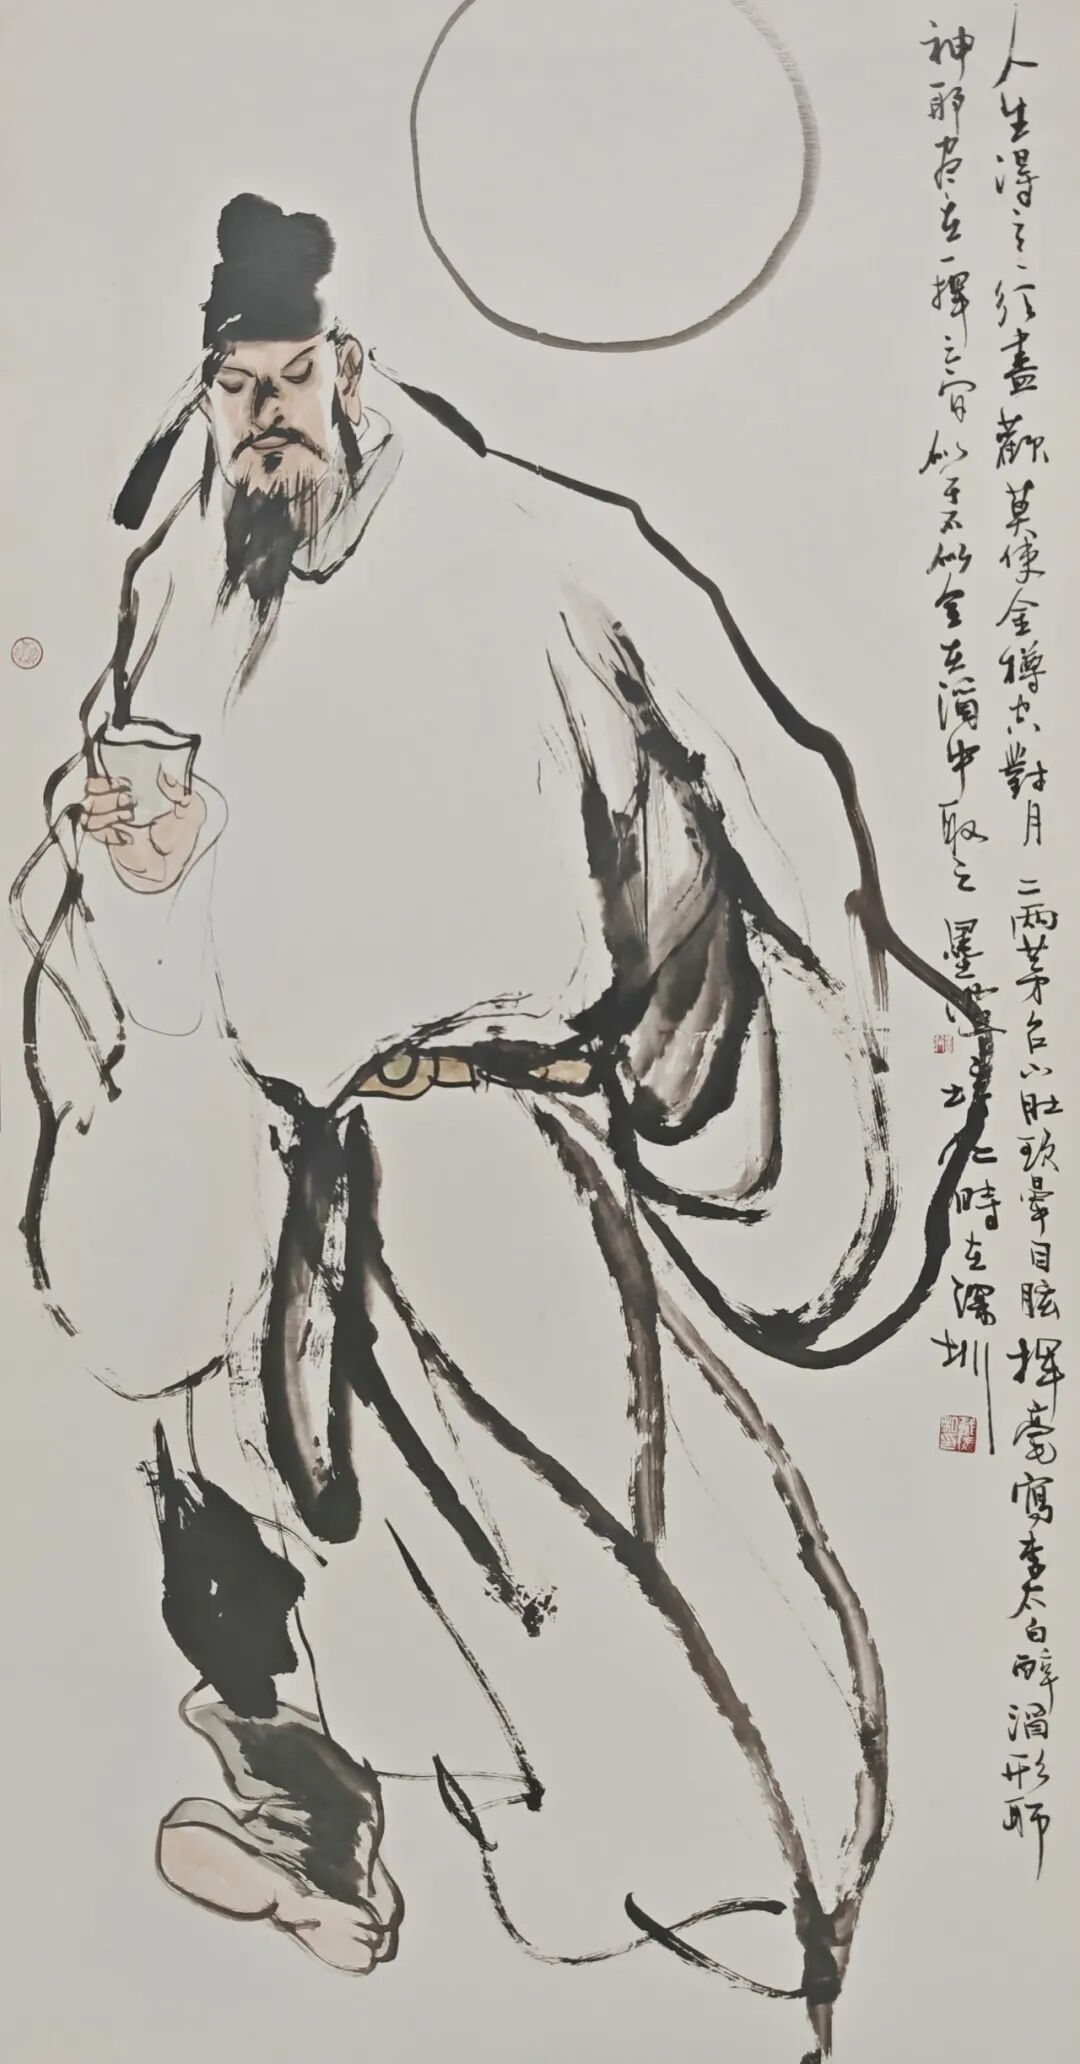 人生得意須盡歡莫使金樽空對月二兩茅台下肚頭暈目眩揮毫寫李太白醉酒形耶
神耶尽在一揮之间似乎不似全在酒中取之墨時在深圳